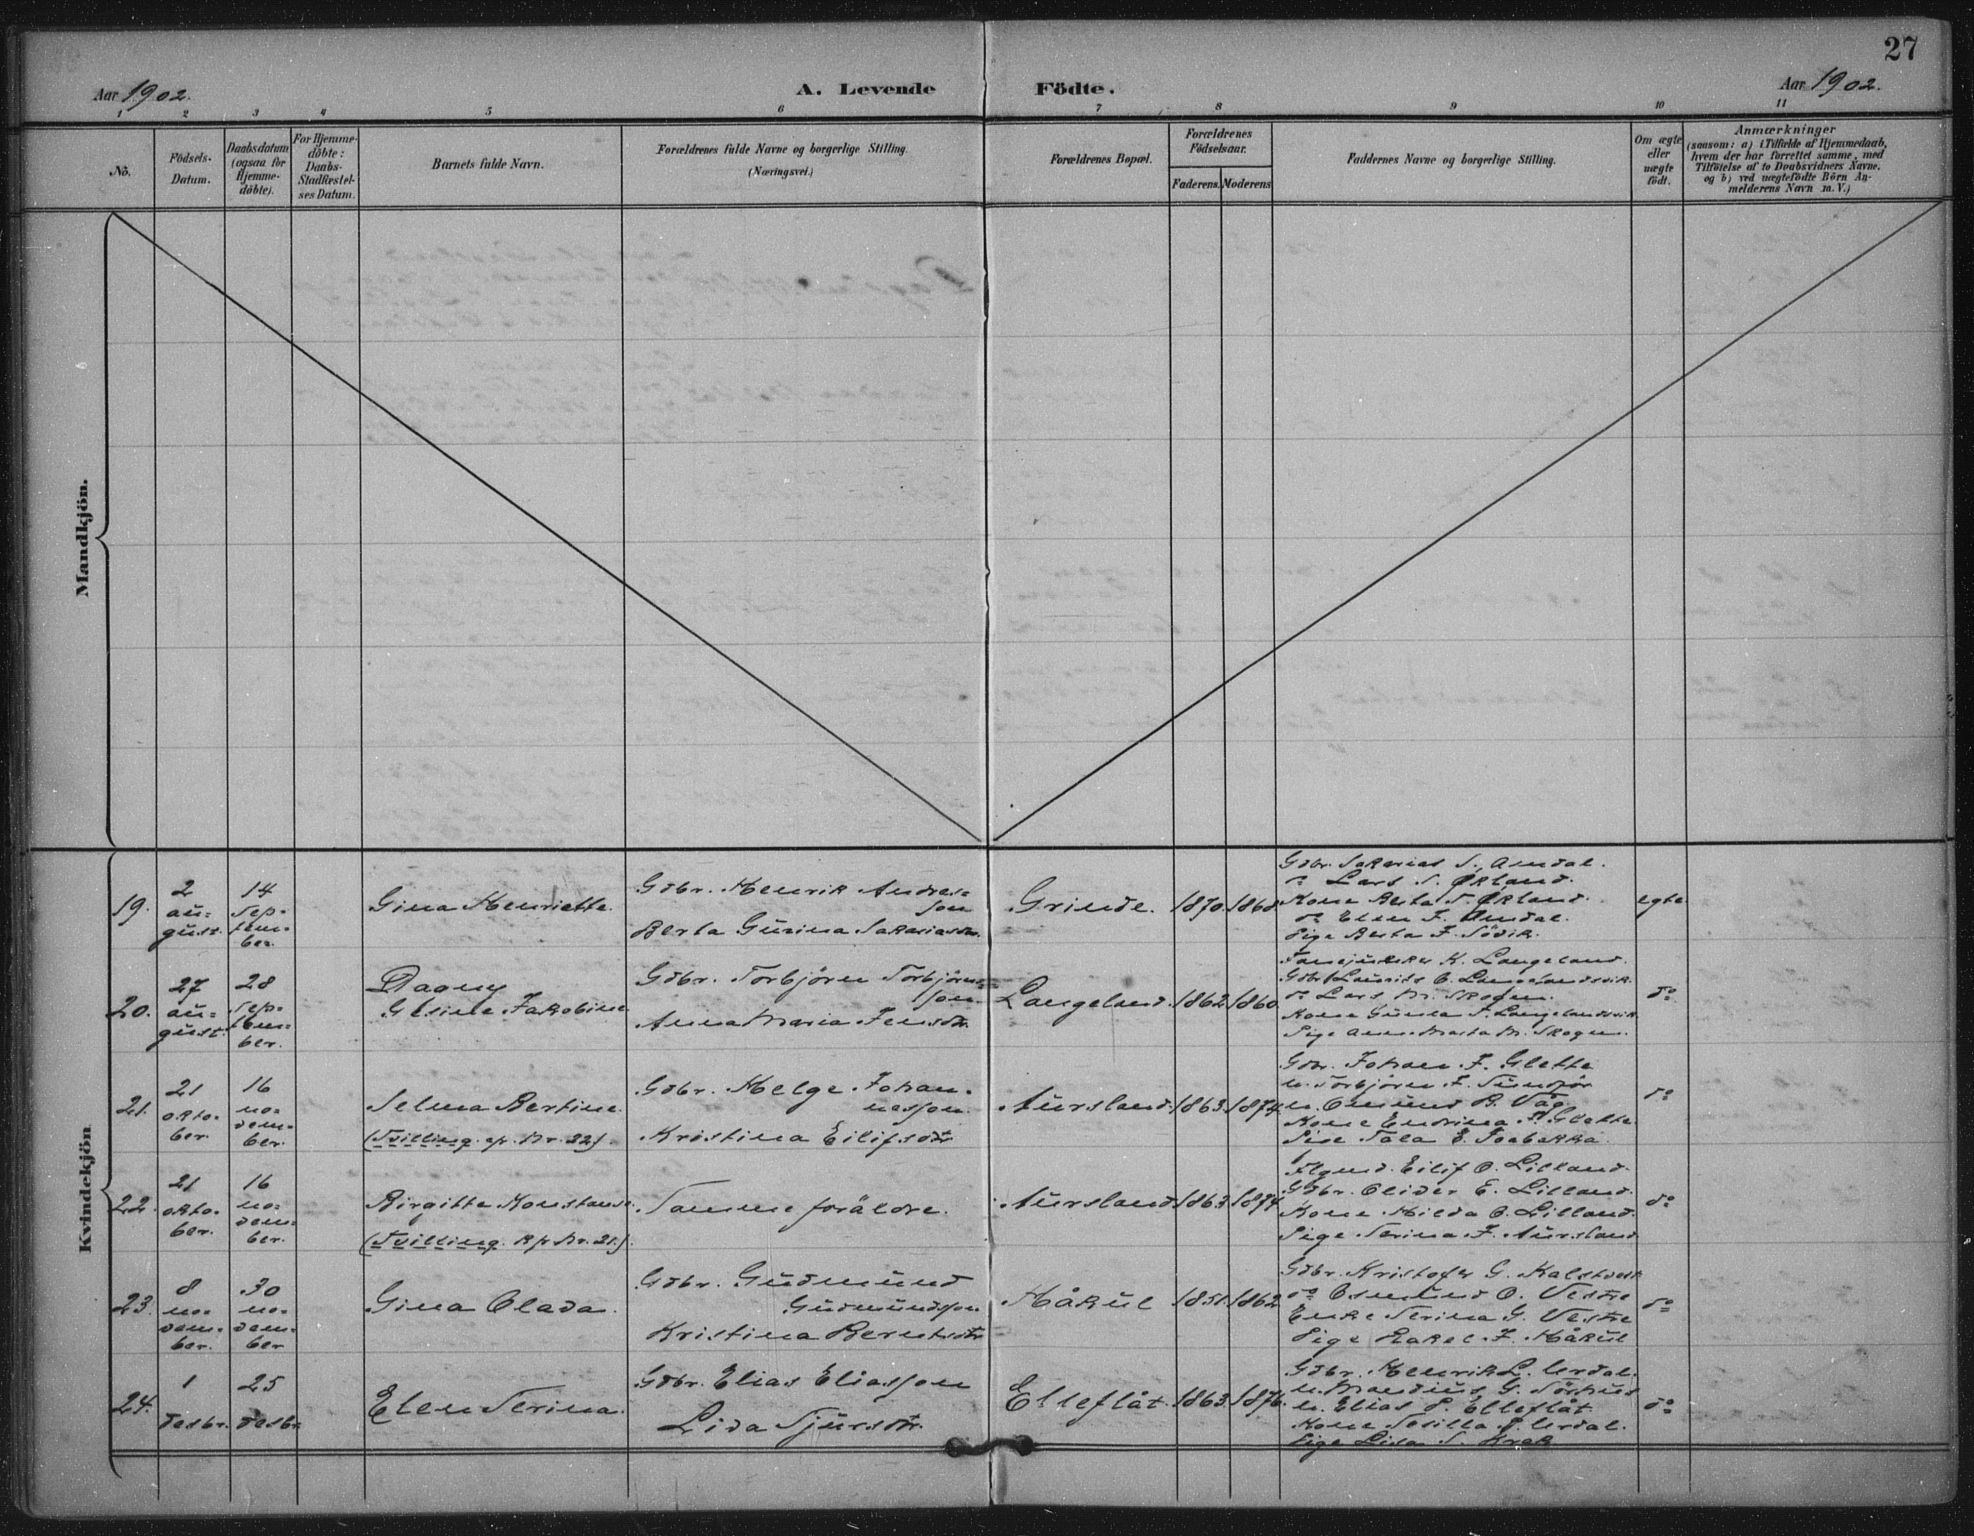 27
Aar 1902.
A. Levende Födte.
Aar 1902.
1 2 3 4 5 6 7 8 9 10 11
No.
Födsels-
Datum.
Daabsdatum
(ogsaa for
Hjemme-
döbte).
For Hjemme-
döbte:
Daabs-
Stadfæstel-
ses Datum.
Barnets fulde Navn.
Forældrenes fulde Navne og borgerlige Stilling.
(Næringsvei.)
Forældrenes Bopæl.
Forældrenes
Födselsaar.
Faderens. Moderens
Faddernes Navne og borgerlige Stilling.
Om ægte
eller
uægte
födt.
Anmærkninger
(saasom: a) i Tilfælde af Hjemmedaab,
hvem der har forrettet samme, med
Tilföielse af to Daabsvidners Navne,
og b) ved uægtefödte Börn An-
melderens Navn m. V.)
Mandkjön.
Kvindekjön
19.
2
au-
gust.
14
Sep-
tem-
ber.
Gina Henriette.
Gdbr. Henrik Andreas-
son
Berta Gurina Sakariasdr.
Grinde.
1870. 1868
Gdbr. Sakarias S. Amdal.
do Lars N. Økland.
Kone Berta N. Økland.
do Elen F. Amdal.
Pige Berta F. Sövik.
egte
20.
27
au-
gust.
28
Sep-
tem-
ber.
Dagny
Gesine Jakobine
Gdbr. Torbjörn Torbjörn-
son.
Anna Maria Jensdr.
Langeland.
1862. 1860.
K. Langeland.
Gdbr. Laurits O. Langelandsvik.
do Lars M. Skogen.
Kone Gunla T. Langelandsvik
Pige Anna Marta M. Skogen.
do
21.
21
okto-
ber.
16
no-
vem-
ber.
Selma Bertine.
(Tvilling. cfr. Nr. 22).
Gdbr. Helge Johan-
nesson.
Kristina Eilifsdtr.
Aursland.
1863. 1874.
Gdbr. Johan J. Glette
u. Torbjörn F. Sundför
u. Omund B. Våg.
Kone Endrina A. Glette
Pige Tala E.
do
22.
21
okto-
ber.
16
no-
vem-
ber.
Birgitte Konstanse
(Tvilling. cfr. Nr. 21.).
Samme forældre.
Aursland.
1863. 1874.
Eilif O. Lilland.
Gdbr. Olider E. Lilland.
Kone Hilda O. Lilland.
Pige Serina J. Aursland
do
23.
8
no-
vem-
ber.
30
no-
vem-
ber
Gina Olava.
Gdbr. Gudmund
Gudmundsson
Kristina Berntsdtr
Håkul
1851. 1862
Gdbr. Kristofer G. Kalstveit
do Osmund O. Vestre
Enke Serina G. Vestre
Pige Rakel J. Håkul
do
24.
1
desbr.
25
desbr.
Elen Serina.
Gdbr. Elias Eliasson
Lida Sjursdtr.
Elleflåt.
1863. 1876.
Gdbr. Henrik L. Urdal.
u. Mandius G. Törhus
u. Elias P. Elleflåt
Kone Sesilla P. Urdal.
Pige Lisa S. Krak
do